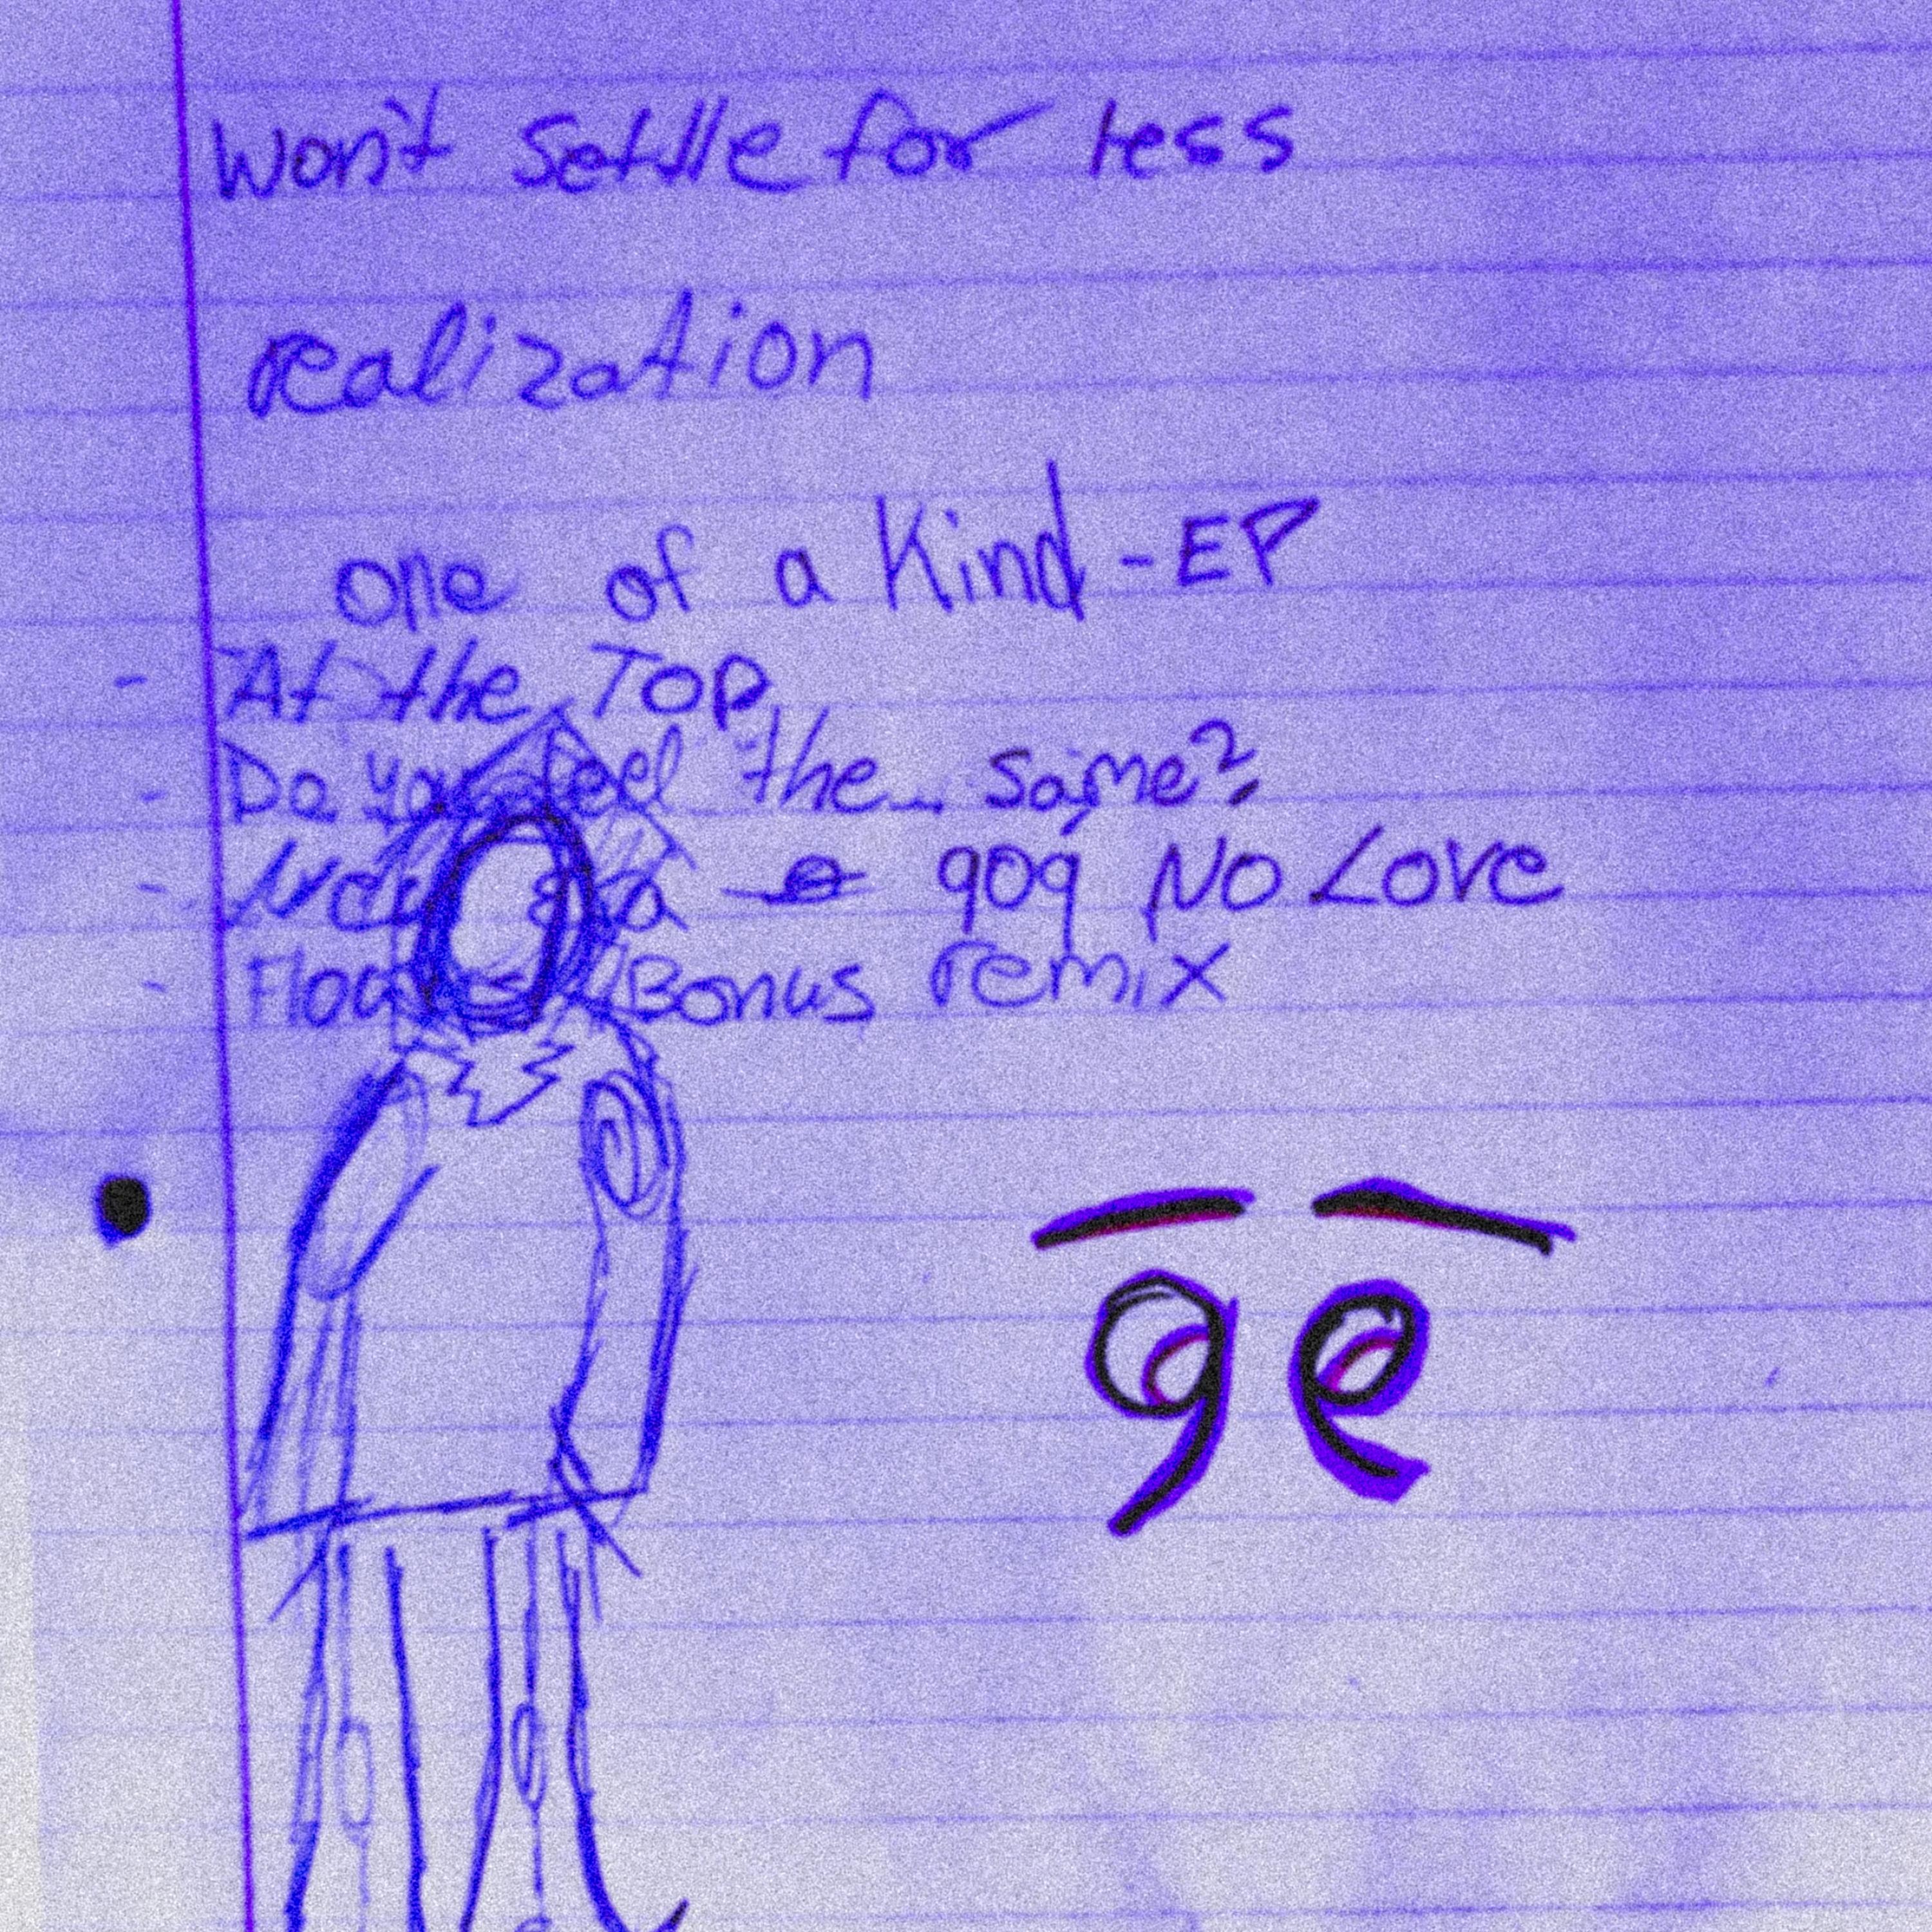 Won't Settle for less
realization
one of a Kind - EP
- At the TOP
- Do you feel the same?
- 909 No Love
- Bonus remix